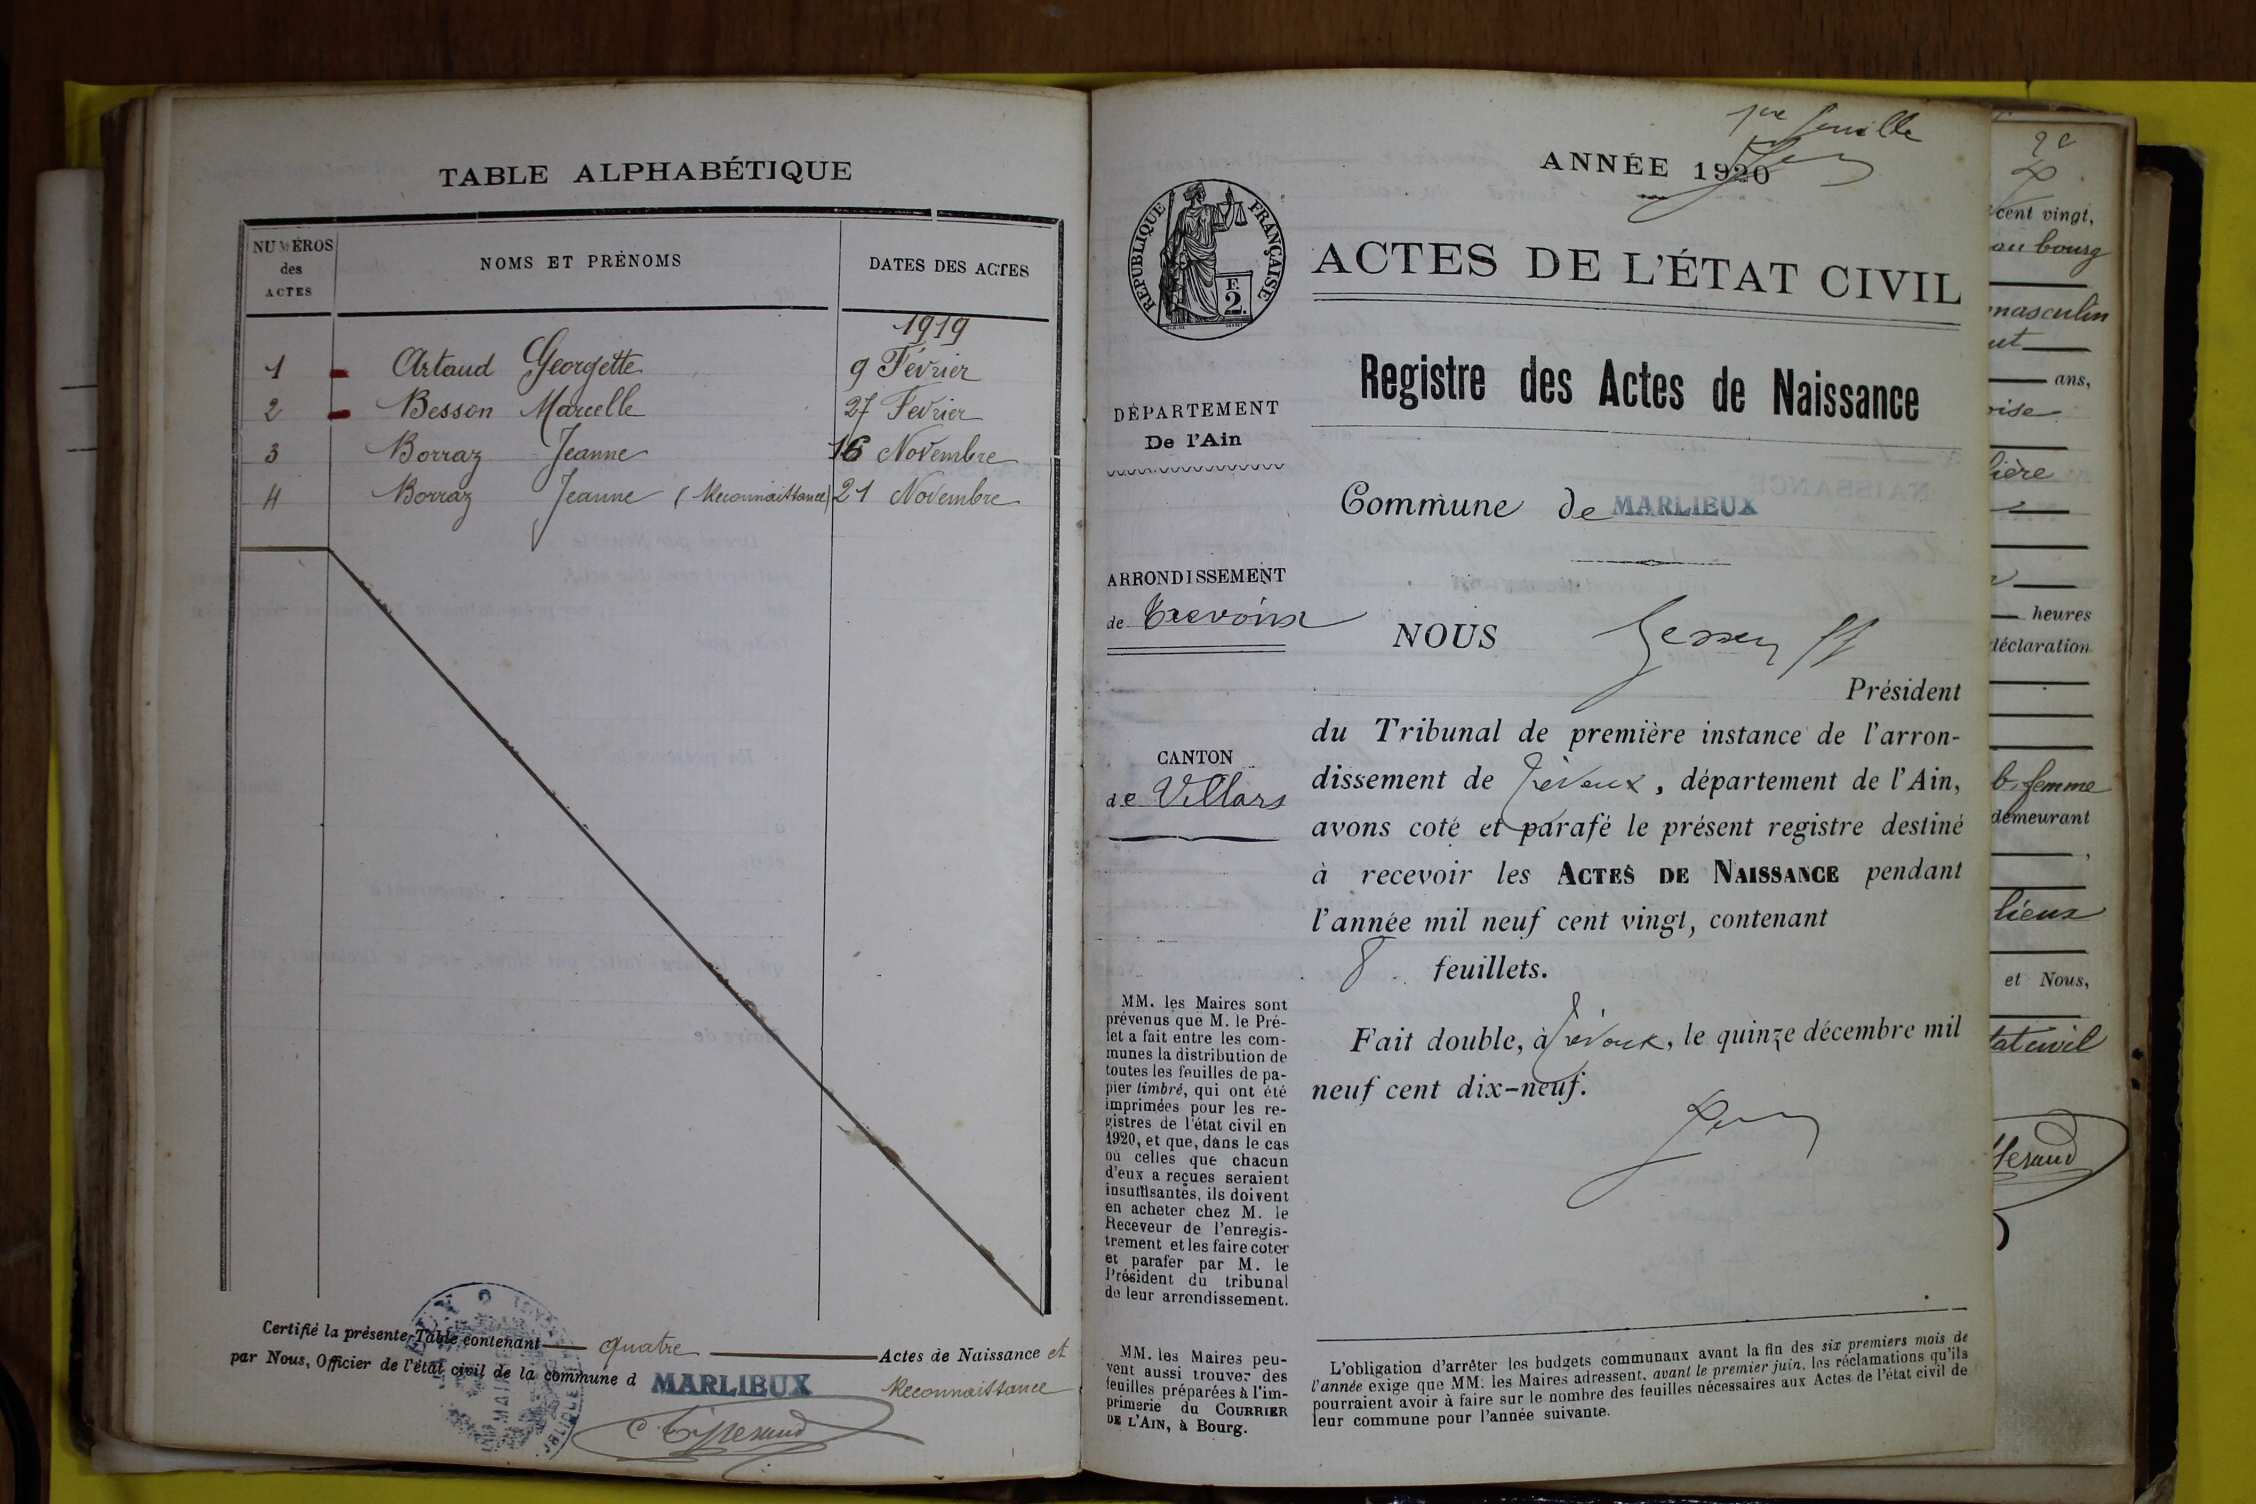 TABLE ALPHABÉTIQUE
NUMÉROS
des
ACTES
NOMS ET PRÉNOMS
DATES DES ACTES
1919
1 Artaud Georgette 9 Février
2 Besson Marcelle 27 Fevrier
3 Borraz Jeanne 16 Novembre
4 Borraz Jeanne (Reconnaissance) 21 Novembre
Certifié la présente Table contenant quatre Actes de Naissance et
par Nous, Officier de l'état civil de la commune d MARLIEUX Reconnaissance
1re feuille
ANNÉE 1920
RÉPUBLIQUE FRANÇAISE
F.
2.
ACTES DE L'ÉTAT CIVIL
Registre des Actes de Naissance
DÉPARTEMENT
De l'Ain
Commune de MARLIEUX
ARRONDISSEMENT
de Trevoux
CANTON
de Villars
NOUS
Président
du Tribunal de première instance de l'arron-
dissement de Trévoux, département de l'Ain,
avons coté et parafé le présent registre destiné
à recevoir les ACTES DE NAISSANCE pendant
l'année mil neuf cent vingt, contenant
8 feuillets.
Fait double, à Trévoux, le quinze décembre mil
neuf cent dix-neuf.
MM. les Maires sont
prévenus que M. le Pré-
fet a fait entre les com-
munes la distribution de
toutes les feuilles de pa-
pier timbré, qui ont été
imprimées pour les re-
gistres de l'état civil en
1920, et que, dans le cas
où celles que chacun
d'eux a reçues seraient
insuffisantes, ils doivent
en acheter chez M. le
Receveur de l'enregis-
trement et les faire coter
et parafer par M. le
Président du tribunal
de leur arrondissement.
MM. les Maires peu-
vent aussi trouver des
feuilles préparées à l'im-
primerie du COURRIER
DE L'AIN, à Bourg.
L'obligation d'arrêter les budgets communaux avant la fin des six premiers mois de
l'année exige que MM. les Maires adressent, avant le premier juin, les réclamations qu'ils
pourraient avoir à faire sur le nombre des feuilles nécessaires aux Actes de l'état civil de
leur commune pour l'année suivante.
2e
cent vingt,
au bourg
masculin
ans,
heures
déclaration
femme
demeurant
lieux
et Nous,